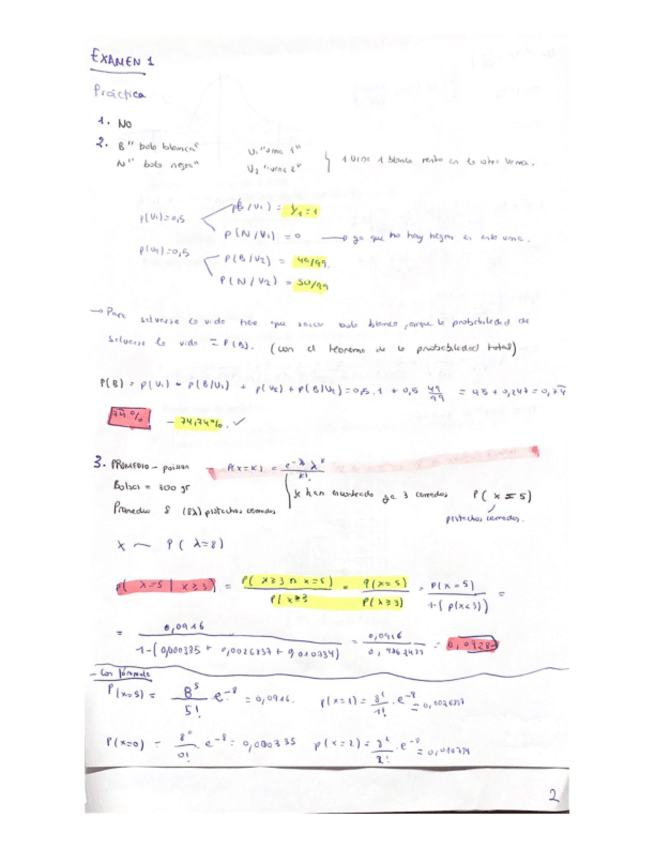 EXAMEN 1
Práctica
1. No
2. B "bola blanca" U₁ "urna 1"
N "bola negra" U₂ "urna 2" } 1 urna 1 blanca resto en la otra urna.
p(U₁)=0,5 p(B/U₁) = 1/1 = 1
p(N/U₁) = 0 → ya que no hay negras en esta urna.
p(U₂)=0,5 p(B/U₂) = 49/99
p(N/U₂) = 50/99
→ Para salvarse la vida tiene que sacar bola blanca, porque la probabilidad de
salvarse la vida = P(B). (con el teorema de la probabilidad total)
p(B) = p(U₁) * p(B/U₁) + p(U₂) + p(B/U₂) = 0,5 . 1 + 0,5 49/99 = + 0,247 = 0,74
74% - 74,74%. ✓
3. PROMEDIO - poisson → P(x=K) = e^-λ λ^K / K!
Bolsa = 300 gr
Promedio 8 (8λ) pistachos cerrados
{ Se han encontrado ya 3 cerrados P(x=5)
pistachos cerrados.
x ~ P(λ=8)
p(x=5 | x≥3) = P(x≥3 ∩ x=5) / P(x≥3) = P(x=5) / P(x≥3) = P(x=5) / 1-(p(x<3)) =
= 0,0916 / 1-(0,000335 + 0,0026837 + 0,010734) = 0,0916 / =
- Con fórmula
P(x=5) = 8⁵/5! e⁻⁸ = 0,0916. p(x=1) = 8¹/1! . e⁻⁸ = 0,0026837
P(x=0) = 8⁰/0! e⁻⁸ = 0,000335 p(x=2) = 8²/2! . e⁻⁸ = 0,010734
2